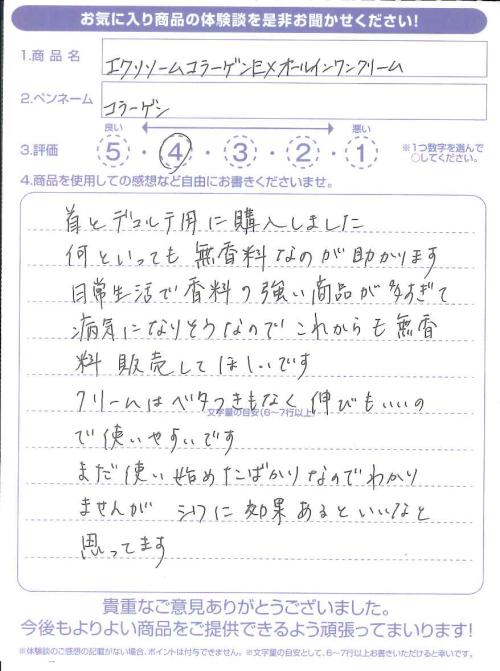 お気に入り商品の体験談を是非お聞かせください!
1.商品名
エクソソームコラーゲンEXオールインワンクリーム
2.ペンネーム
コラーゲン
良い 悪い
3.評価 5・4・3・2・1
※1つ数字を選んで
○してください。
4.商品を使用しての感想など自由にお書きくださいませ。
首とデコルテ用に購入しました
何といっても無香料なのが助かります
日常生活で香料の強い商品が多すぎて
病気になりそうなのでこれからも無香
料販売してほしいです
クリームはベタつきもなく伸びもいいの
文字量の目安(6〜7行以上)
で使いやすいです
まだ使い始めたばかりなのでわかり
ませんが シワに効果あるといいなと
思ってます
貴重なご意見ありがとうございました。
今後もよりよい商品をご提供できるよう頑張ってまいります!
※体験談のご感想の記載がない場合、ポイントは付与できません。※文字量の目安として、6〜7行以上お書きいただけると幸いです。